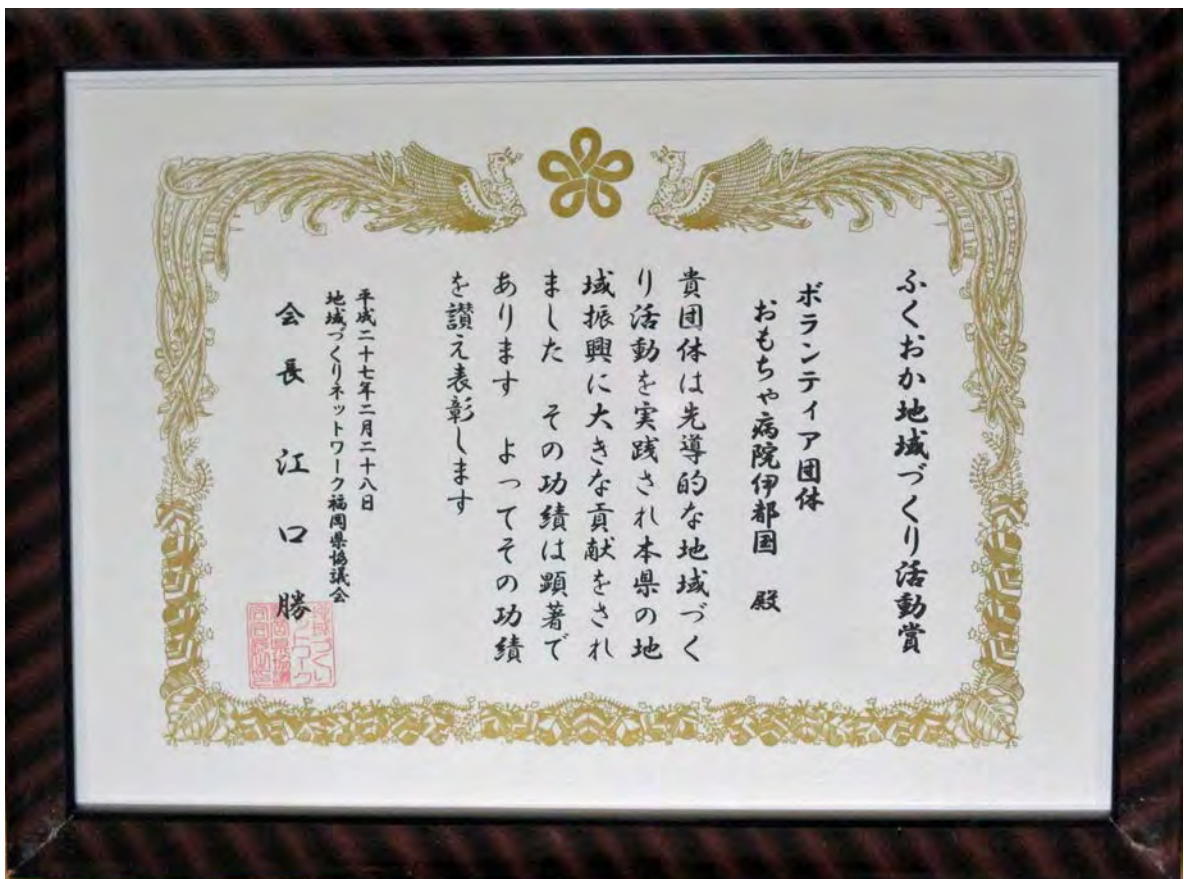 ふくおか地域づくり活動賞
ボランティア団体
おもちゃ病院伊都国 殿
貴団体は先導的な地域づく
り活動を実践され本県の地
域振興に大きな貢献をされ
ました その功績は顕著で
あります よってその功績
を讃え表彰します
平成二十七年二月二十八日
地域づくりネットワーク福岡県協議会
会長 江口 勝